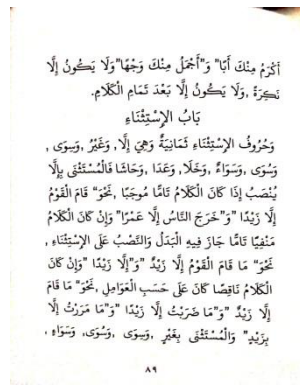 أَكْرَمُ مِنْكَ أَبًا" وَ"أَجْمَلُ مِنْكَ وَجْهًا" وَلَا يَكُونُ إِلَّا
نَكِرَةً ,وَلَا يَكُونُ إِلَّا بَعْدَ تَمَامِ الْكَلَامِ.
بَابُ الْإِسْتِثْنَاءِ
وَحُرُوفُ الْإِسْتِثْنَاءِ ثَمَانِيَةٌ وَهِيَ إِلَّا, وَغَيْرُ ,وَسِوَى ,
وَسُوَى ,وَسَوَاءٌ ,وَخَلَا, وَعَدَا ,وَحَاشَا فَالْمُسْتَثْنَى بِإِلَّا
يُنْصَبُ إِذَا كَانَ الْكَلَامُ تَامًّا مُوجَبًا ,نَحْوَ" قَامَ الْقَوْمُ
إِلَّا زَيْدًا "وَ"خَرَجَ النَّاسُ إِلَّا عَمْرًا" وَإِنْ كَانَ الْكَلَامُ
مَنْفِيًّا تَامًّا جَازَ فِيهِ الْبَدَلُ وَالنَّصْبُ عَلَى الْإِسْتِثْنَاءِ ,
نَحْوَ" مَا قَامَ الْقَوْمُ إِلَّا زَيْدٌ "وَ"إِلَّا زَيْدًا "وَإِنْ كَانَ
الْكَلَامُ نَاقِصًا كَانَ عَلَى حَسَبِ الْعَوَامِلِ ,نَحْوَ" مَا قَامَ
إِلَّا زَيْدٌ "وَ"مَا ضَرَبْتُ إِلَّا زَيْدًا "وَ"مَا مَرَرْتُ إِلَّا
بِزَيْدٍ" وَالْمُسْتَثْنَى بِغَيْرِ ,وَسِوَى ,وَسُوَى, وَسَوَاءٍ ,
٨٩